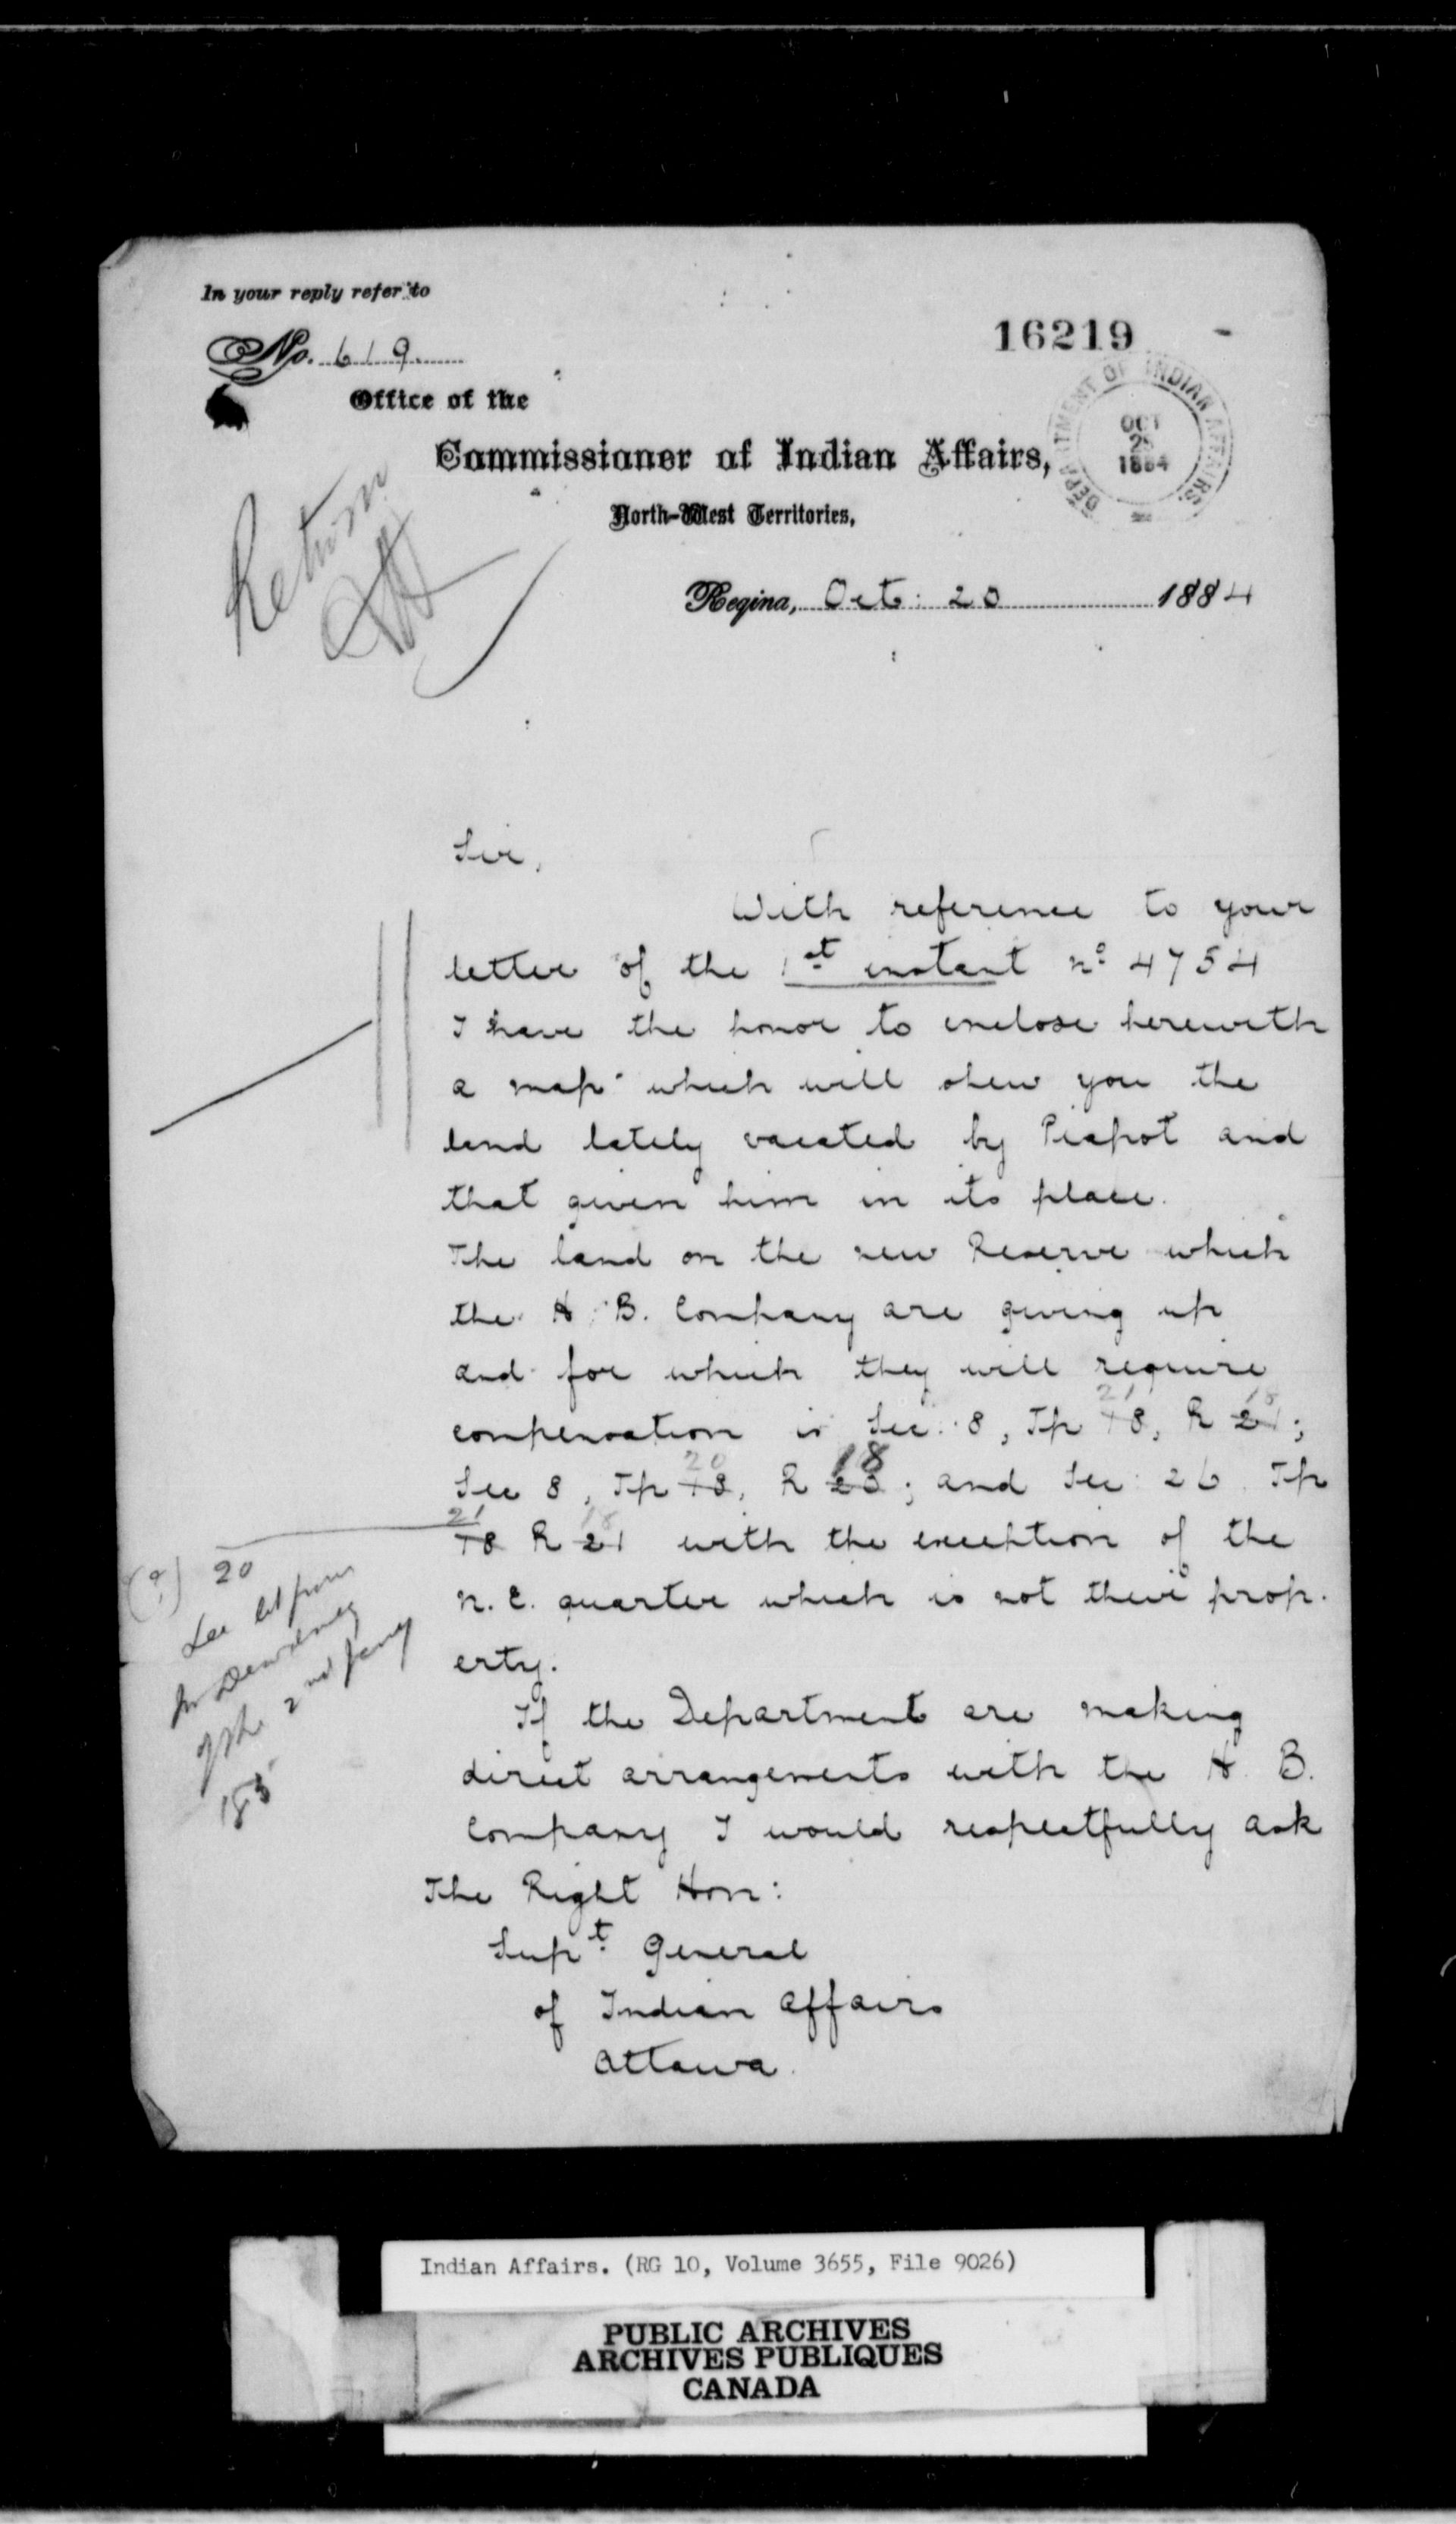 In your reply refer to
No. 619.
16219
Office of the
Commissioner of Indian Affairs,
North-West Territories,
DEPARTMENT OF INDIAN AFFAIRS.
OCT
25
1884
Return
Regina, Oct: 20 1884
Sir,
With reference to your
letter of the 1st instant no 4754
I have the honor to enclose herewith
a map which will shew you the
land lately vacated by Piapot and
that given him in its place.
The land on the new Reserve which
the H. B. Company are giving up
and for which they will require
21 18
compensation is Sec. 8, Tp 18, R 21;
20 18
Sec 8, Tp 18, R 20; and Sec: 26 Tp
21 18
18 R 21 with the exception of the
N. E. quarter which is not their prop-
erty.
(?) 20
See let from
Mr Dewdney
of the 2nd Jany
185
If the Department are making
direct arrangements with the H. B.
Company I would respectfully ask
The Right Hon:
Supt General
of Indian Affairs
Ottawa.
Indian Affairs. (RG 10, Volume 3655, File 9026)
PUBLIC ARCHIVES
ARCHIVES PUBLIQUES
CANADA